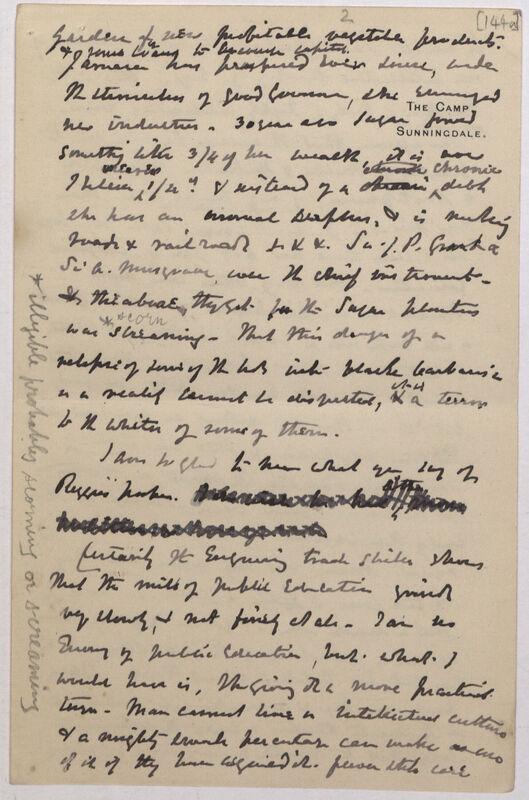 2
[144a]
Garden of new profitable vegetable products.
& some things to encourage capital.
Jamaica has prospered ever since, under
the stimulus of good Governors, she
THE CAMP,
SUNNINGDALE.
new industries. 30 years ago Sugar formed
something like 3/4 of her wealth, it is now
I believe 1/4 & instead of a chronic debt
she has an annual surplus, & is making
roads & railroads &c &c. Sir J. P. Grant &
Sir A. Musgrave, were the chief instruments.
& the abuse they got for the Sugar planters
* scorn
was screaming. That this danger of a
relapse of some of the into black barbarism
is a reality cannot be disputed, & a terror
to the whites of some of them.
I am so glad to hear what you say of
paper.
Certainly the Engraving trade strike shows
that the mills of public Education grind
very slowly, & not finely at all. I am no
Enemy of public education, but what I
would have is, the giving it a more practical
turn. Man cannot live on intellectual culture
& a mighty small percentage can make use
of it if they have acquired it. few care
* illegible probably scorning or screaming